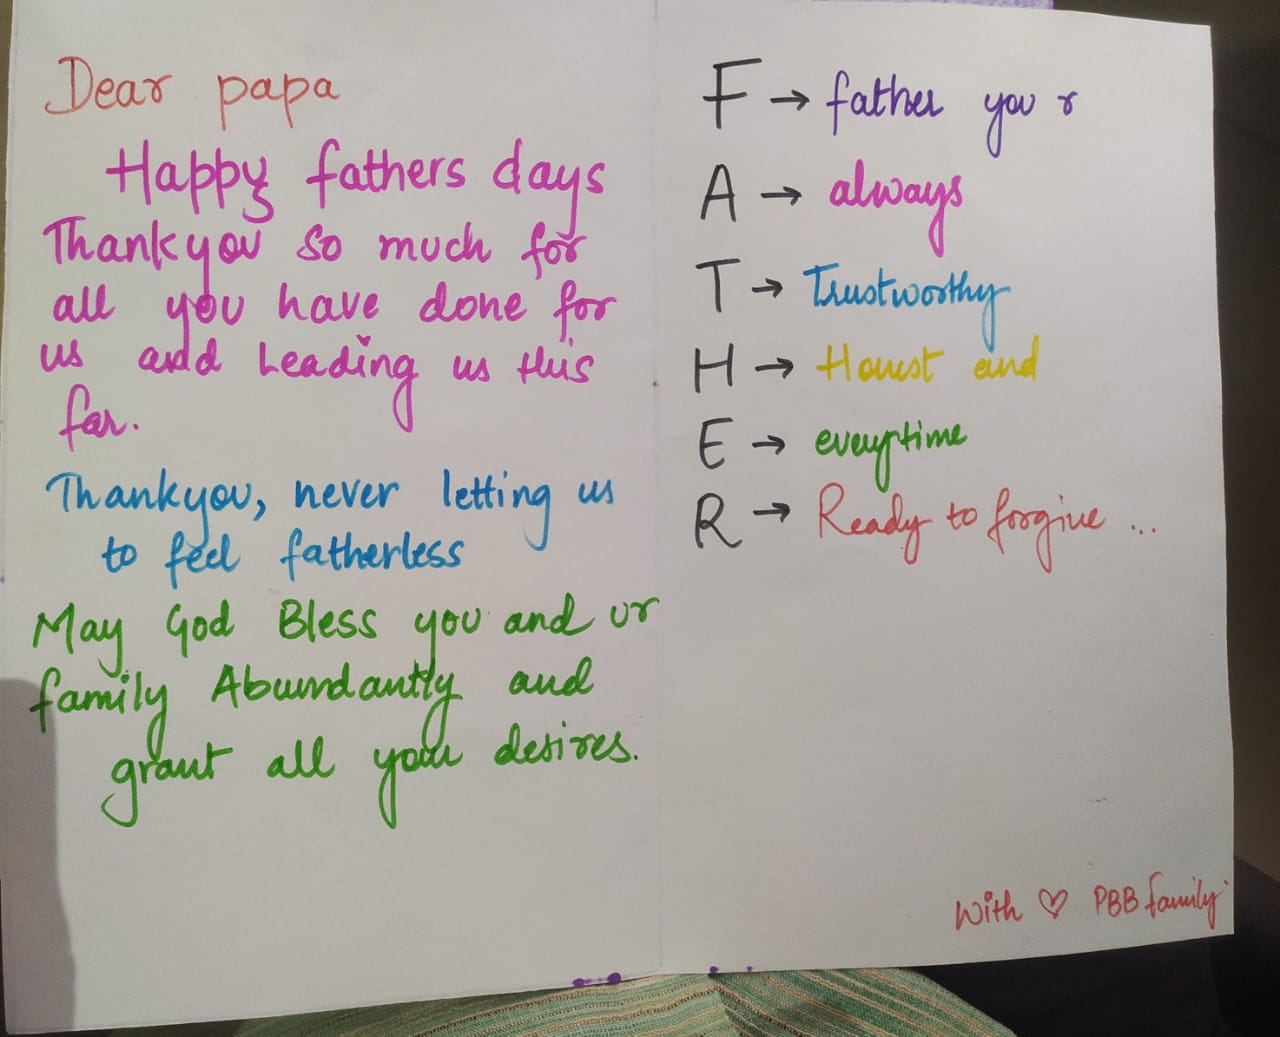 Dear papa
Happy fathers days
Thankyou so much for
all you have done for
us and Leading us this
far.
Thankyou, never letting us
to feel fatherless
May God Bless you and ur
family Abundantly and
grant all your desires.
F → father you r
A → always
T → Trustworthy
H → Honest and
E → everytime
R → Ready to forgive ...
With ♡ PBB family